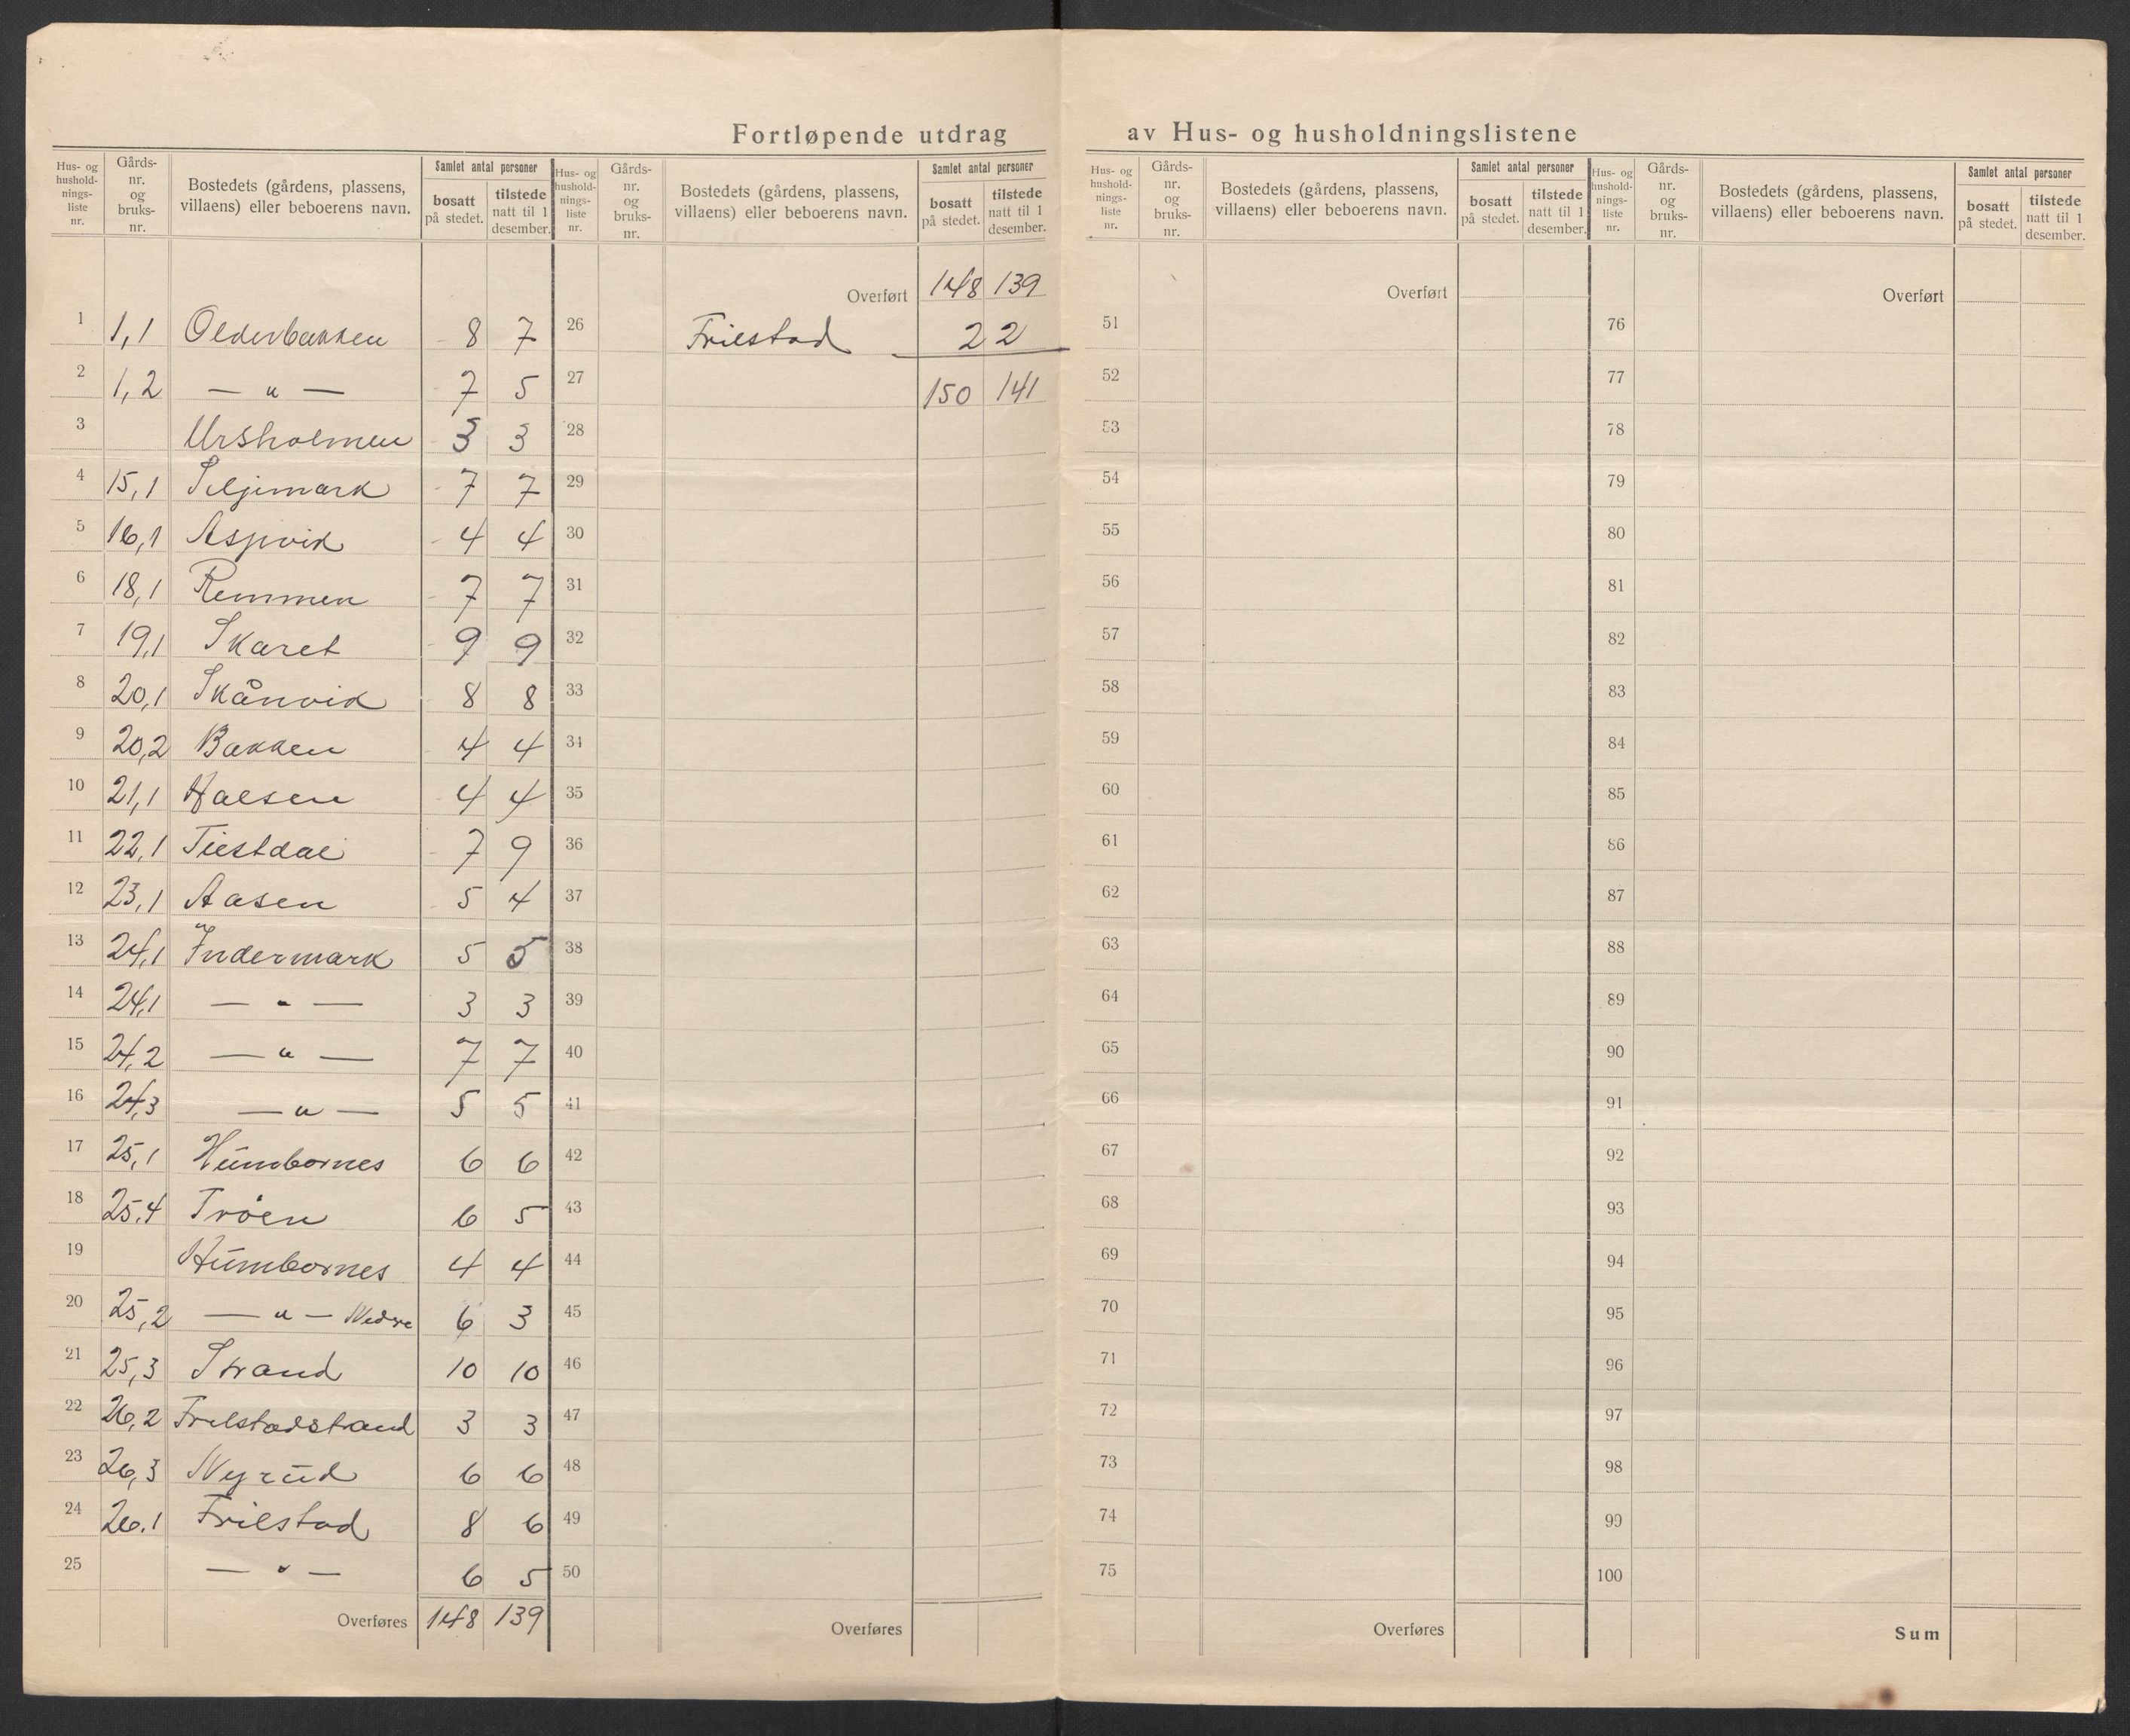 Fortløpende utdrag av Hus- og husholdningslistene
Hus- og hushold-nings-liste nr. | Gårds-nr. og bruks-nr. | Bostedets (gårdens, plassens, villaens) eller beboerens navn. | Samlet antal personer | bosatt på stedet. | tilstede natt til 1 desember.
1 1,1 Olderbakken 8 7
2 1,2 — " — 7 5
3 Ursholmen 3 3
4 15,1 Seljemark 7 7
5 16,1 Aspvik 4 4
6 18,1 Remmen 7 7
7 19,1 Skaret 9 9
8 20,1 Skånvik 8 8
9 20,2 Bakken 4 4
10 21,1 Halsen 4 4
11 22,1 Tiestdal 7 9
12 23,1 Aasen 5 4
13 24,1 Indermark 5 5
14 24,1 — " — 3 3
15 24,2 — " — 7 7
16 24,3 — " — 5 5
17 25,1 Humbornes 6 6
18 25,4 Trøen 6 5
19 Humbornes 4 4
20 25,2 — " — Nedre 6 3
21 25,3 Strand 10 10
22 26,2 Frelstadstrand 3 3
23 26,3 Nyrud 6 6
24 26.1 Frilstad 8 6
25 — " — 6 5
Overføres 148 139
Hus- og hushold-nings-liste nr. | Gårds-nr. og bruks-nr. | Bostedets (gårdens, plassens, villaens) eller beboerens navn. | Samlet antal personer | bosatt på stedet. | tilstede natt til 1 desember.
Overført 148 139
26 Frilstad 2 2
27 150 141
28
29
30
31
32
33
34
35
36
37
38
39
40
41
42
43
44
45
46
47
48
49
50
Overføres
Hus- og hushold-nings-liste nr. | Gårds-nr. og bruks-nr. | Bostedets (gårdens, plassens, villaens) eller beboerens navn. | Samlet antal personer | bosatt på stedet. | tilstede natt til 1 desember.
Overført
51
52
53
54
55
56
57
58
59
60
61
62
63
64
65
66
67
68
69
70
71
72
73
74
75
Overføres
Hus- og hushold-nings-liste nr. | Gårds-nr. og bruks-nr. | Bostedets (gårdens, plassens, villaens) eller beboerens navn. | Samlet antal personer | bosatt på stedet. | tilstede natt til 1 desember.
Overført
76
77
78
79
80
81
82
83
84
85
86
87
88
89
90
91
92
93
94
95
96
97
98
99
100
Sum